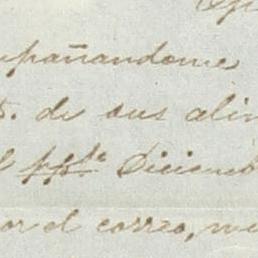 upañandome
5. de sus alim
l ppdo Diciemb
or el correo, mi